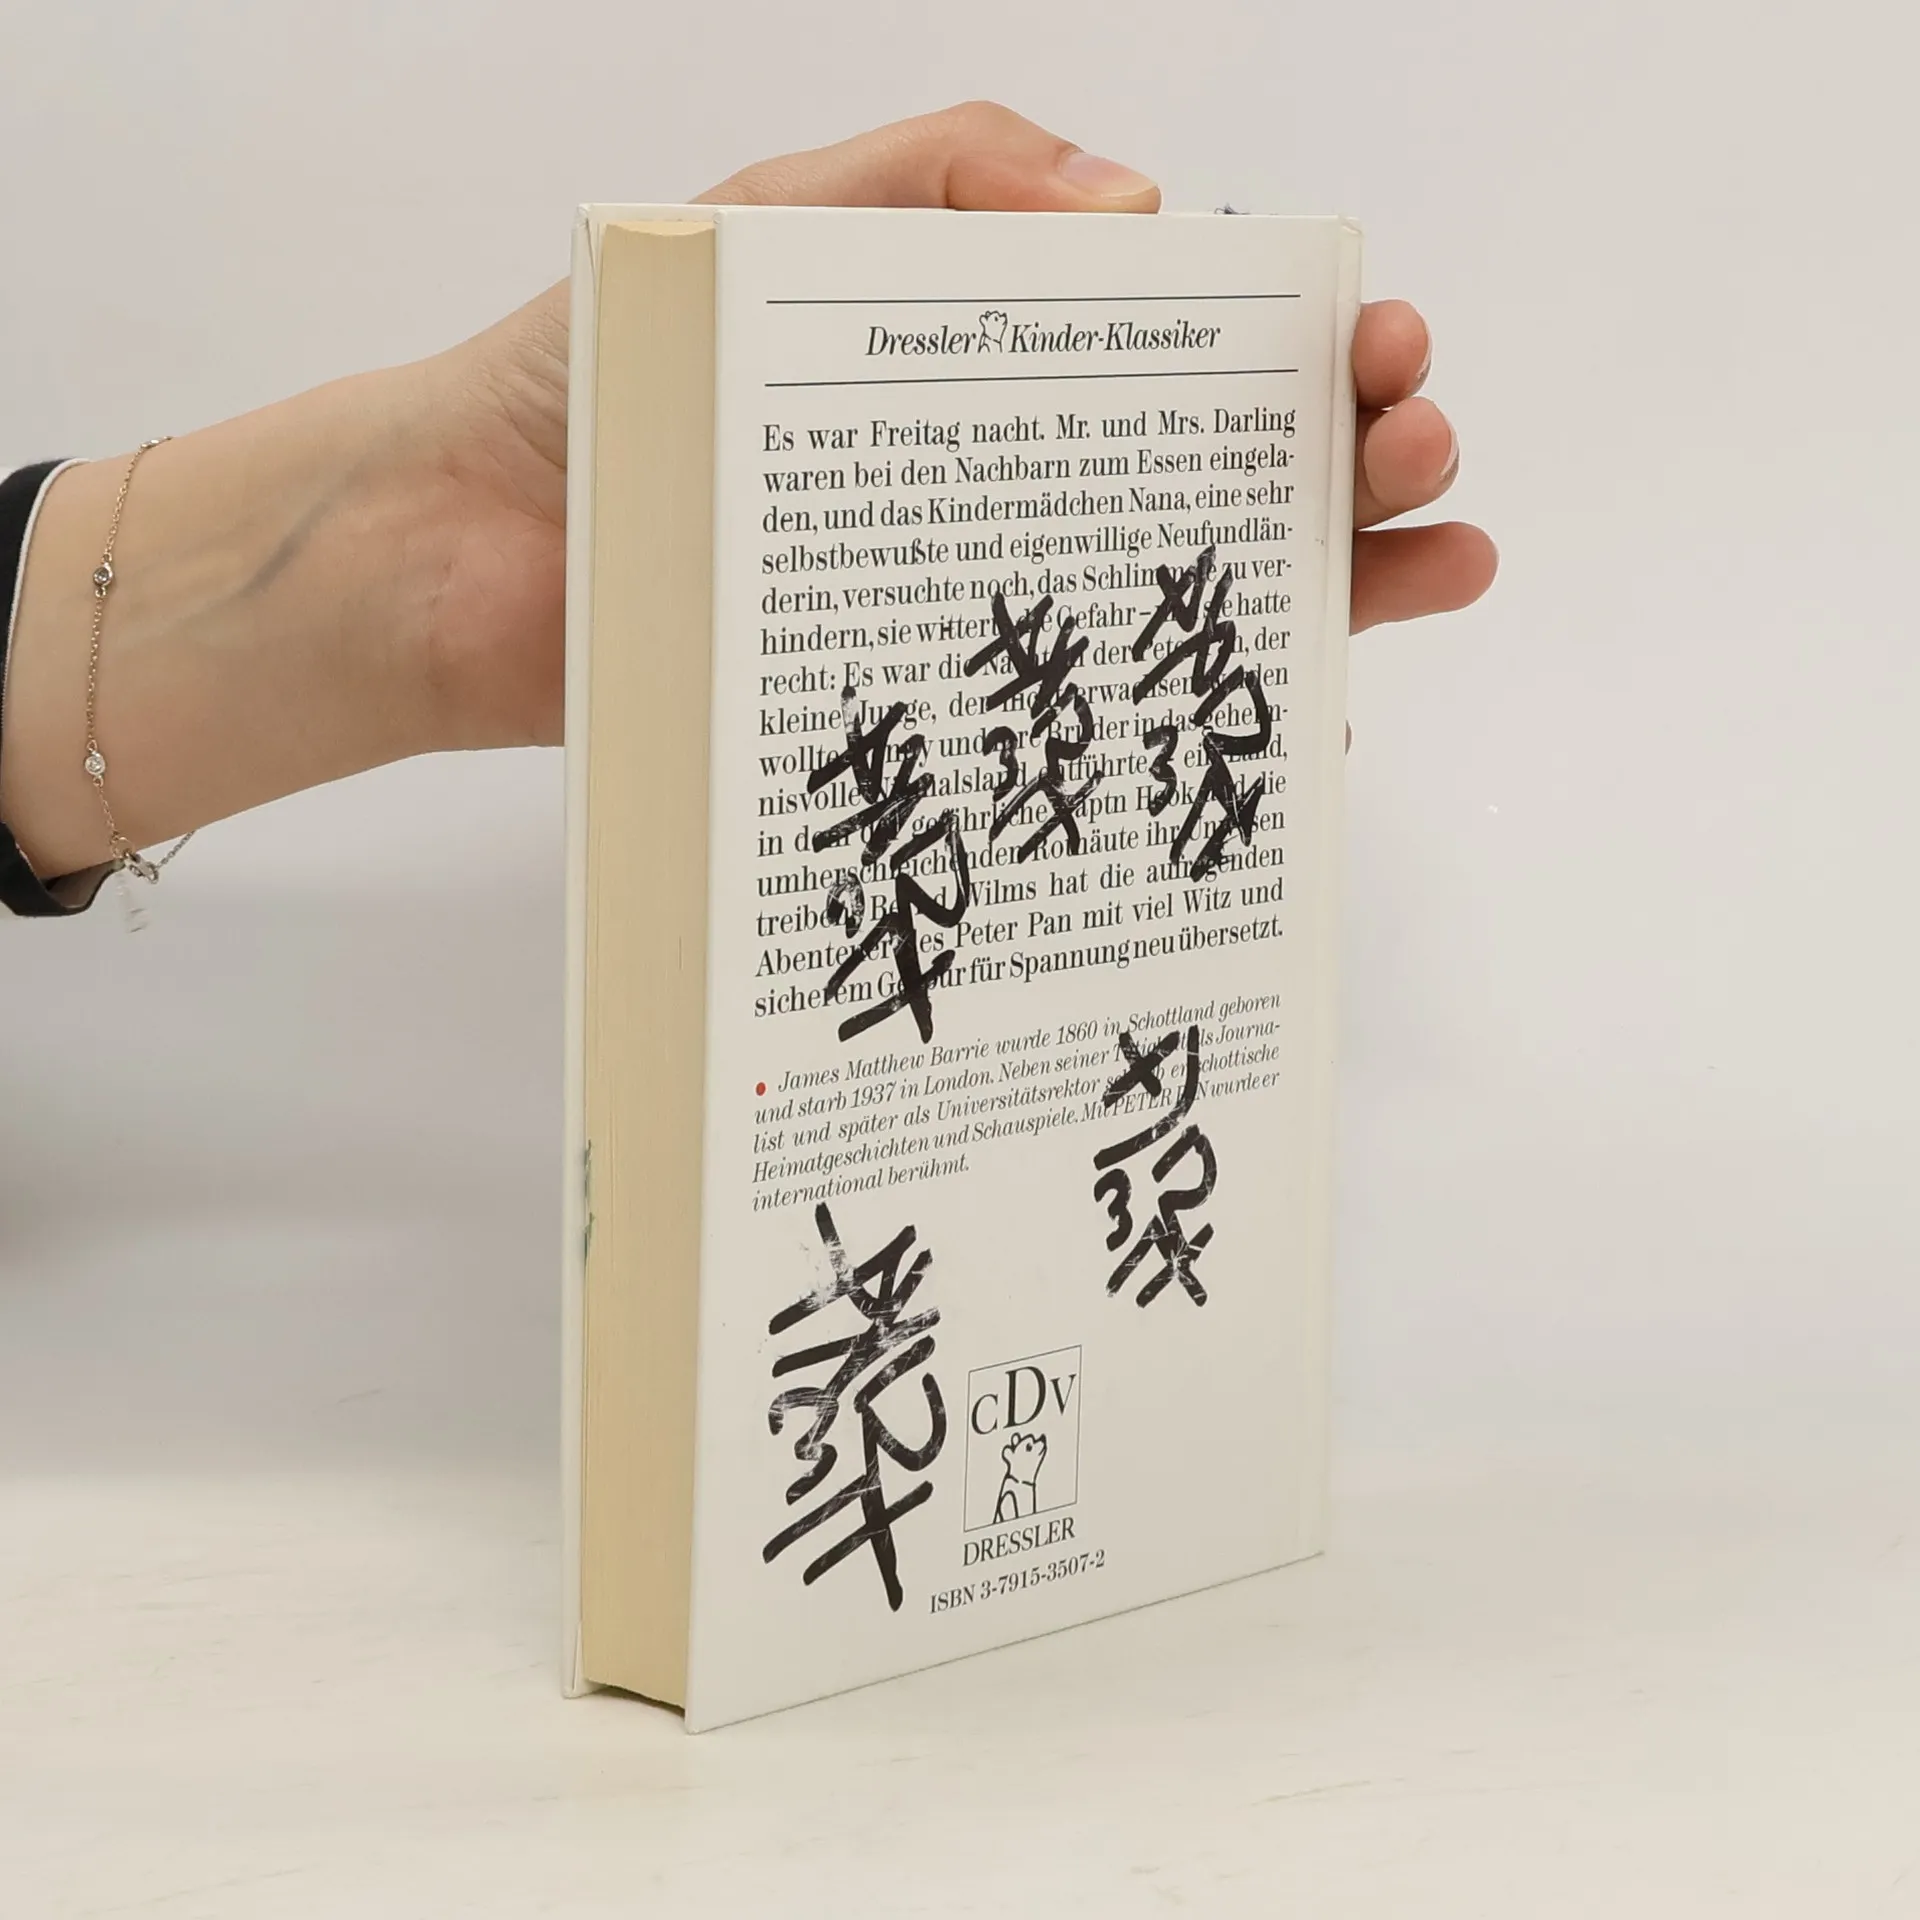 Dressler Kinder-Klassiker
Es war Freitag nacht. Mr. und Mrs. Darling
waren bei den Nachbarn zum Essen eingela-
den, und das Kindermädchen Nana, eine sehr
selbstbewußte und eigenwillige Neufundlän-
derin, versuchte noch, das Schlimmste zu ver-
hindern, sie witterte die Gefahr – und sie hatte
recht: Es war die Nacht, in der Peter Pan, der
kleine Junge, der nicht erwachsen werden
wollte, Wendy und ihre Brüder in das geheim-
nisvolle Niemalsland entführte – ein Land,
in dem der gefährliche Käptn Hook und die
umherschleichenden Rothäute ihr Unwesen
treiben. Bernd Wilms hat die aufregenden
Abenteuer des Peter Pan mit viel Witz und
sicherem Gespür für Spannung neu übersetzt.
• James Matthew Barrie wurde 1860 in Schottland geboren
und starb 1937 in London. Neben seiner Tätigkeit als Journa-
list und später als Universitätsrektor schrieb er schottische
Heimatgeschichten und Schauspiele. Mit PETER PAN wurde er
international berühmt.
CDV
DRESSLER
ISBN 3-7915-3507-2